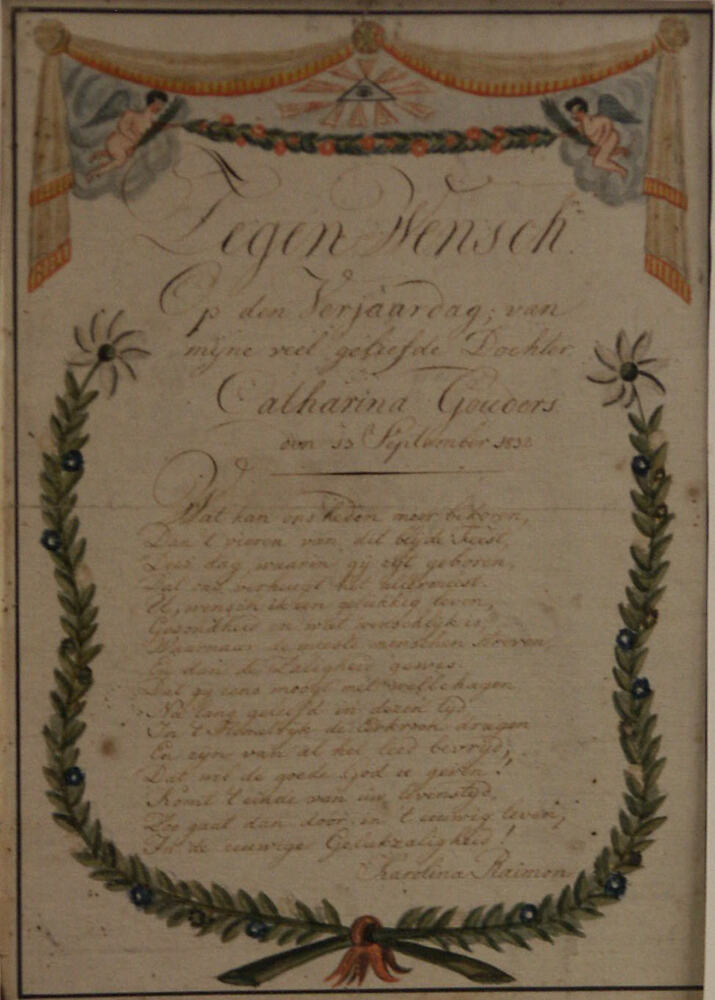 Zegen Wensch
Op den Verjaardag, van
mijne veel geliefde Dochter
Catharina Govoers
den 13 September 1832
Wat kan ons heden meer bekoren,
Dan 't vieren van dit blijde Feest,
Deez dag waarin gij zijt geboren,
Dat ons verheugt het allermeest.
U, wensch ik een gelukkig leven,
Gesondheid en wat wenschlijk is,
Waarnaar de meeste menschen streven,
En dan de Zaligheid gewis.
Dat gij eens moogt met welbehagen
Na lang geleefd in dezen tijd
In 't Hemelrijk de kroon dragen
En zijn van al het leed bevrijd,
Dat wil de goede God u geven!
Komt 't einde van uw levenstijd,
Zoo gaat dan door in 't eeuwig leven,
In de eeuwige Gelukzaligheid!
Karolina Raimon